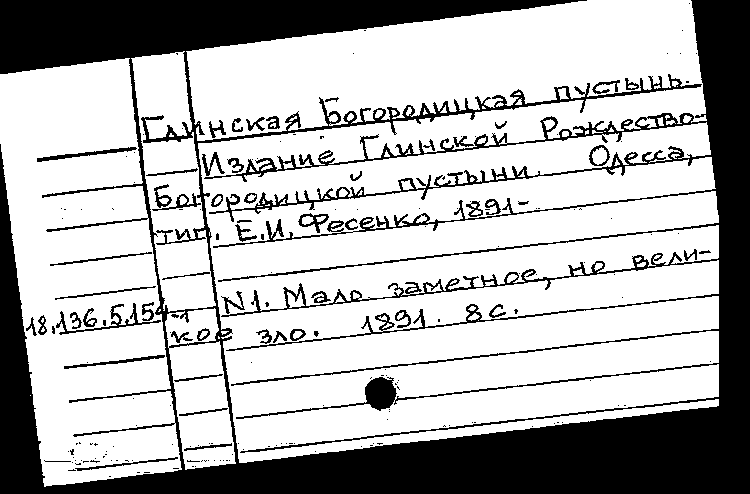 Глинская Богородицкая пустынь.
Издание Глинской Рождество-
Богородицкой пустыни. Одесса,
тип. Е.И. Фесенко, 1891-
18.136.5.154-1 N1. Мало заметное, но вели-
кое зло. 1891. 8с.